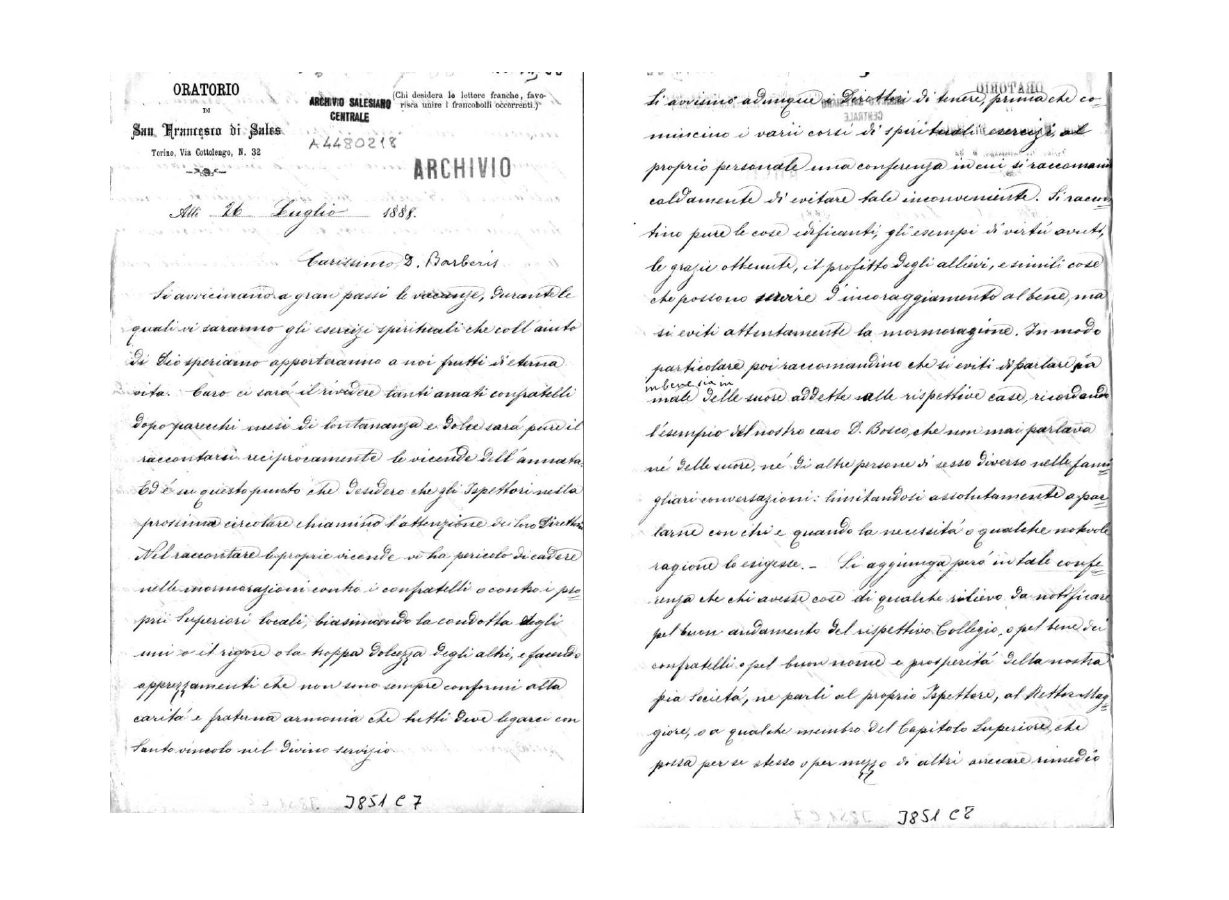 ORATORIO
DI
San Francesco di Sales
Torino, Via Cottolengo, N. 32
ARCHIVIO SALESIANO
CENTRALE
A4480218
(Chi desidera le lettere franche, favo-
risca unire i francobolli occorrenti.)
ARCHIVIO
Alli 26 Luglio 1888.
Carissimo D. Barberis
Si avvicinano a gran passi le vacanze, durante le
quali vi saranno gli esercizi spirituali che coll'aiuto
di Dio speriamo apporteranno a noi frutti di eterna
vita. Caro ci sará il rivedere tanti amati confratelli
dopo parecchi mesi di lontananza e dolce sará pure il
raccontarsi reciprocamente le vicende dell'annata.
Ed é su questo punto che desidero che gli Ispettori nella
prossima circolare chiamino l'attenzione dei loro Direttori
Nel raccontare le proprie vicende vi ha pericolo di cadere
nelle mormorazioni contro i confratelli o contro i pro=
prii Superiori locali, biasimando la condotta degli
uni o il rigore o la troppa dolcezza degli altri, e facendo
apprezzamenti che non sono sempre conformi alla
caritá e fraterna armonia che tutti deve legarci con
Santo vincolo nel divino servizio
J851 C7
Si avvisino adunque i Direttori di tenere, prima che co-
mincino i varii corsi di spirituali esercizi, al
proprio personale una conferenza in cui si raccomandi
caldamente di evitare tale inconveniente. Si raccon
tino pure le cose edificanti, gli esempi di virtú avuti,
le grazie ottenute, il profitto degli allievi, e simili cose
che possono servire d'incoraggiamento al bene, ma
si eviti attentamente la mormorazione. In modo
particolare poi raccomandino che si eviti di parlare sia
in bene sia in
male delle suore addette alle rispettive case, ricordando
l'esempio del nostro caro D. Bosco, che non mai parlava
né delle suore, né di altre persone di sesso diverso nelle fami
gliari conversazioni: limitandosi assolutamente a par=
larne con chi e quando la necessitá o qualche notevole
ragione lo esigesse. - Si aggiunga peró in tale confe=
renza che chi avesse cose di qualche rilievo da notificare
pel buon andamento del rispettivo Collegio, o pel bene dei
confratelli o pel buon nome e prosperitá della nostra
pia Societá, ne parli al proprio Ispettore, al Rettor Mag=
giore, o a qualche membro del Capitolo Superiore, che
possa per se stesso o per mezzo di altri arrecare rimedio
J851 C8